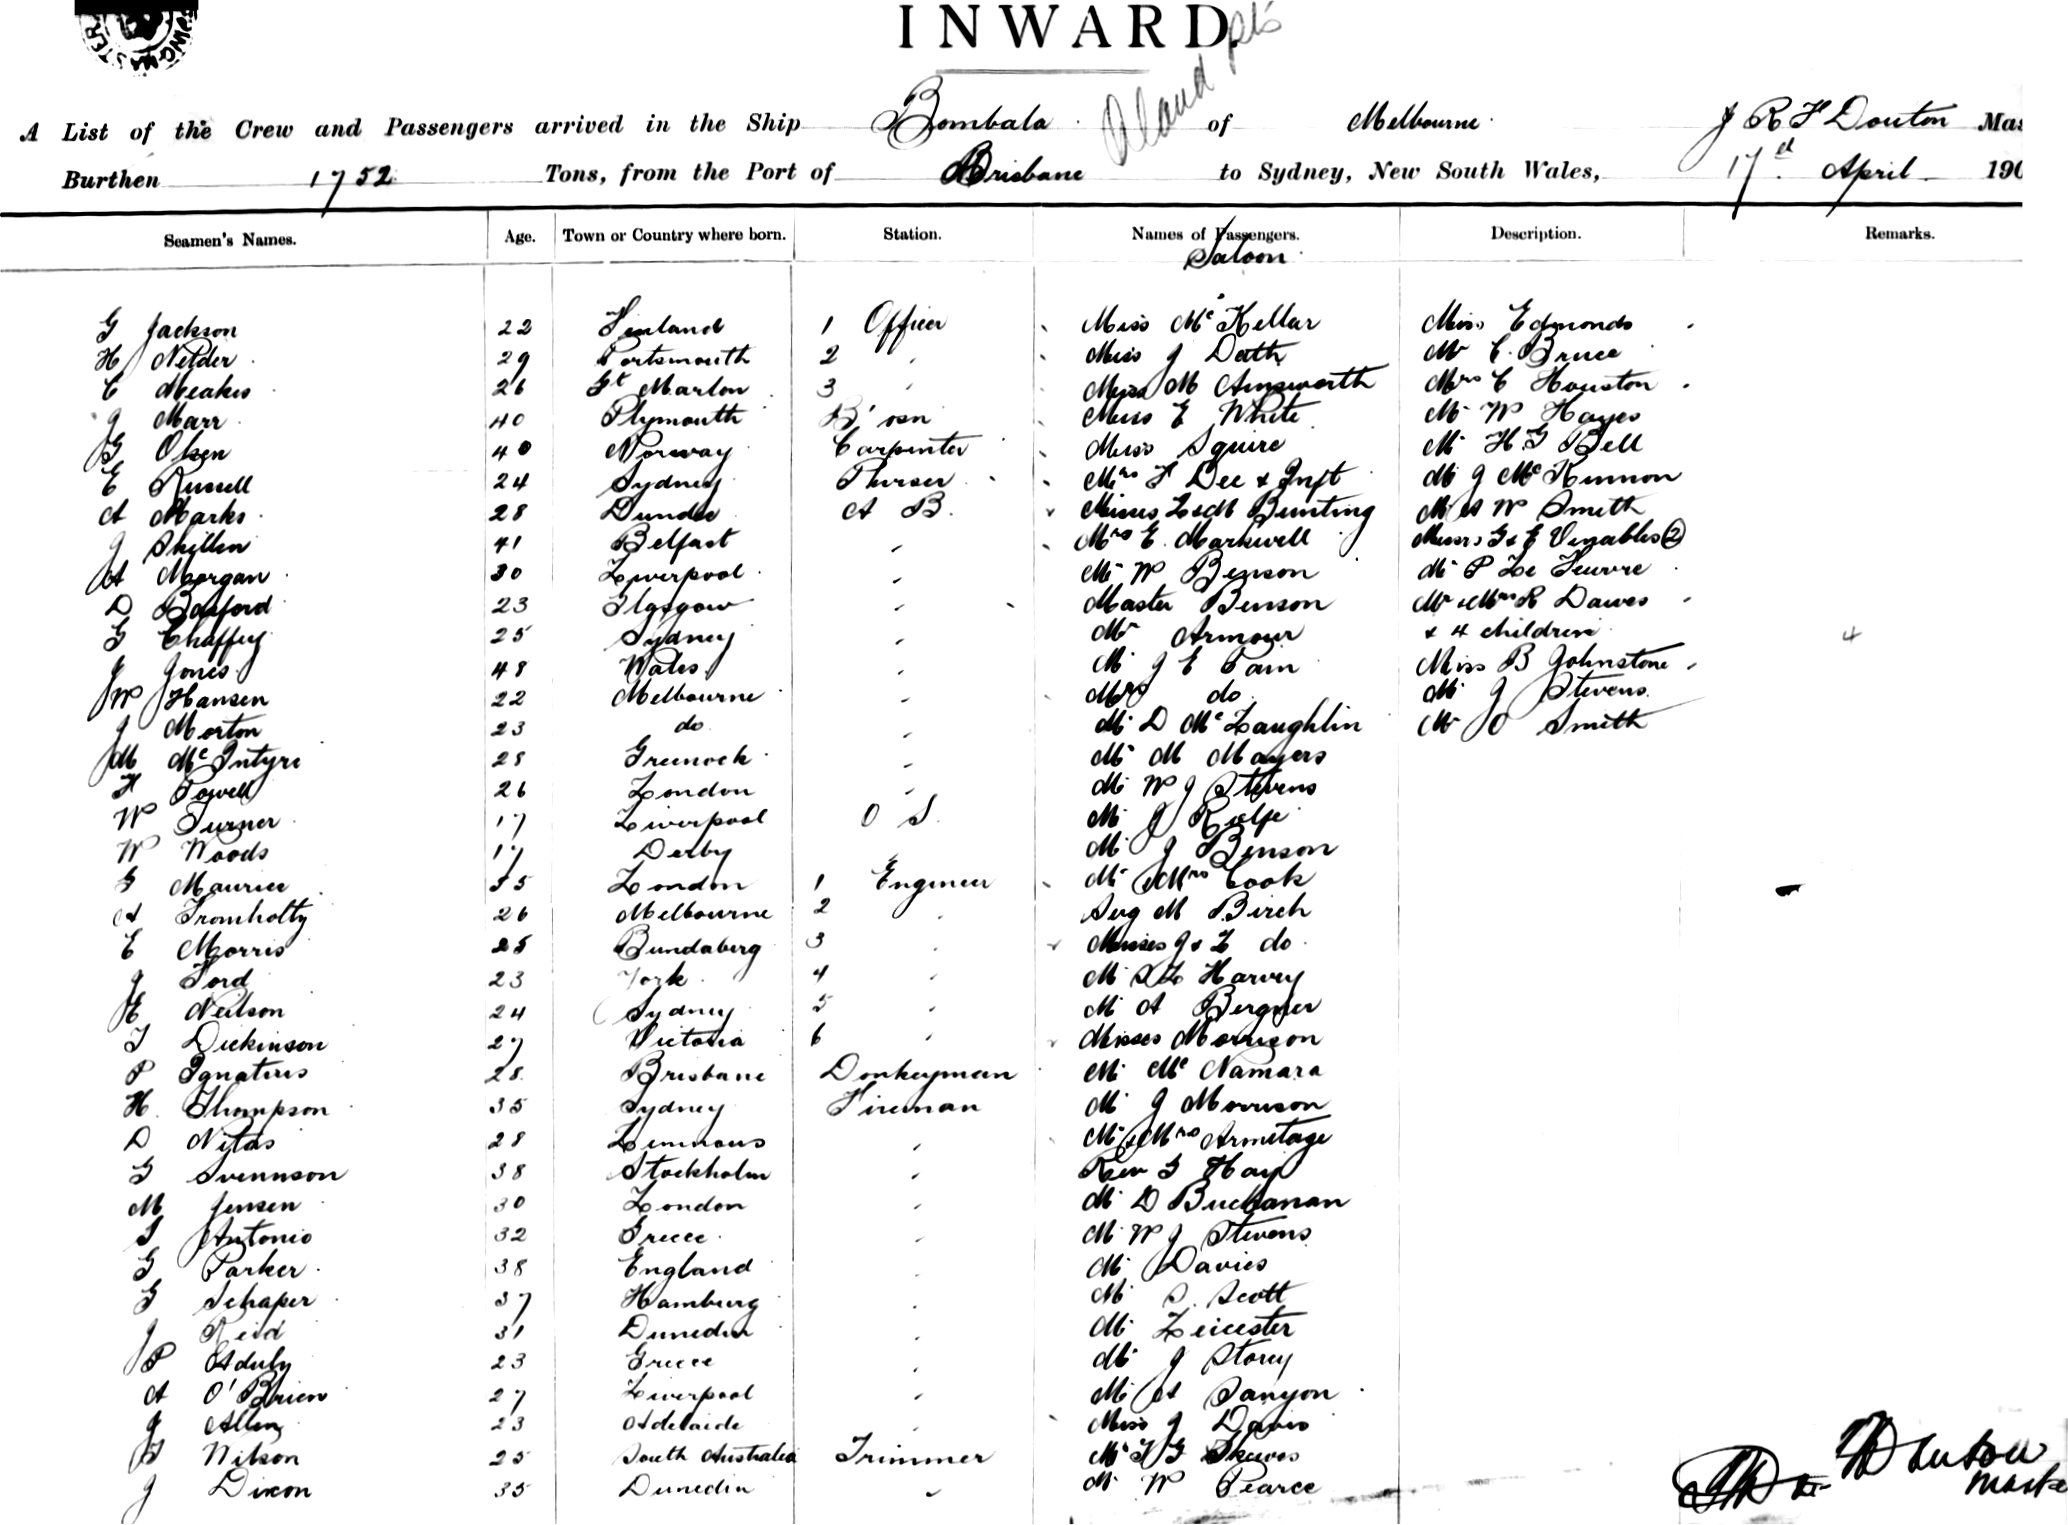 INWARD.
A List of the Crew and Passengers arrived in the Ship Bombala of Melbourne J R F Douton Mas
Burthen 1752 Tons, from the Port of Brisbane to Sydney, New South Wales, 17 April 190
Seamen's Names. Age. Town or Country where born. Station. Names of Passengers. Description. Remarks.
Saloon
G Jackson 22 Finland 1 Officer Miss McKellar Miss Edmonds
H Nelder 29 Portsmouth 2 " Miss J Dath Mr C. Bruce
C Meakes 26 St Marton 3 " Miss M Ainsworth Mrs C Houston
J Marr 40 Plymouth B'osn Miss E White Mr W Hayes
G Olsen 40 Norway Carpenter Miss Squire Mr H G Bell
E Russell 24 Sydney Purser Mrs F Dee & Inft Mr J McKinnon
A Marks 28 Dundee A B. Misses L & M Bunting Mr A W Smith
J Skillen 41 Belfast " Mrs E. Markwell Messrs G & E Venables (2)
A Morgan 30 Liverpool " Mr W Benson Mr P Le Feuvre
D Basford 23 Glasgow " Master Benson Mr & Mrs R Dawes
G Chaffey 25 Sydney " Mr Armour & 4 children 4
J Jones 48 Wales " Mr J E Cain Miss B Johnstone
W Hansen 22 Melbourne " Mrs do Mr J Stevens
J Morton 23 do " Mr D McLaughlin Mr O Smith
M McIntyre 28 Greenock " Mr M Mayers
H Powell 26 London " Mr W J Stevens
W Turner 17 Liverpool O S. Mr J Rolfe
W Woods 17 Derby Mr J Benson
G Maurice 35 London 1 Engineer Mr & Mrs Cook
A Fromholtz 26 Melbourne 2 " M Birch
E Morris 25 Bundaberg 3 " Misses J & L do
J Ford 23 York 4 " Mr S L Harvey
E Neilson 24 Sydney 5 " Mr A Bergner
T Dickinson 27 Victoria 6 " Misses Morrison
P Ignatius 28 Brisbane Donkeyman Mr McNamara
H. Thompson 35 Sydney Fireman Mr J Morrison
D Nitas 28 Limnous " Mr & Mrs Armitage
G Svennson 38 Stockholm " Rev G Hay
M Jensen 30 London " Mr D Buchanan
S Antonio 32 Greece " Mr W J Stevens
G Parker 38 England " Mr Davies
G Schaper 37 Hamburg " Mr S. Scott
J Reid 31 Dunedin " Mr Leicester
P Aduly 23 Greece " Mr J Storey
A O'Brien 27 Liverpool " Mr A Sanyon
J Allen 23 Adelaide " Miss J Davis
T Nilson 25 South Australia Trimmer Mr T G Skewes
J Dixon 35 Dunedin " Mr W Pearce